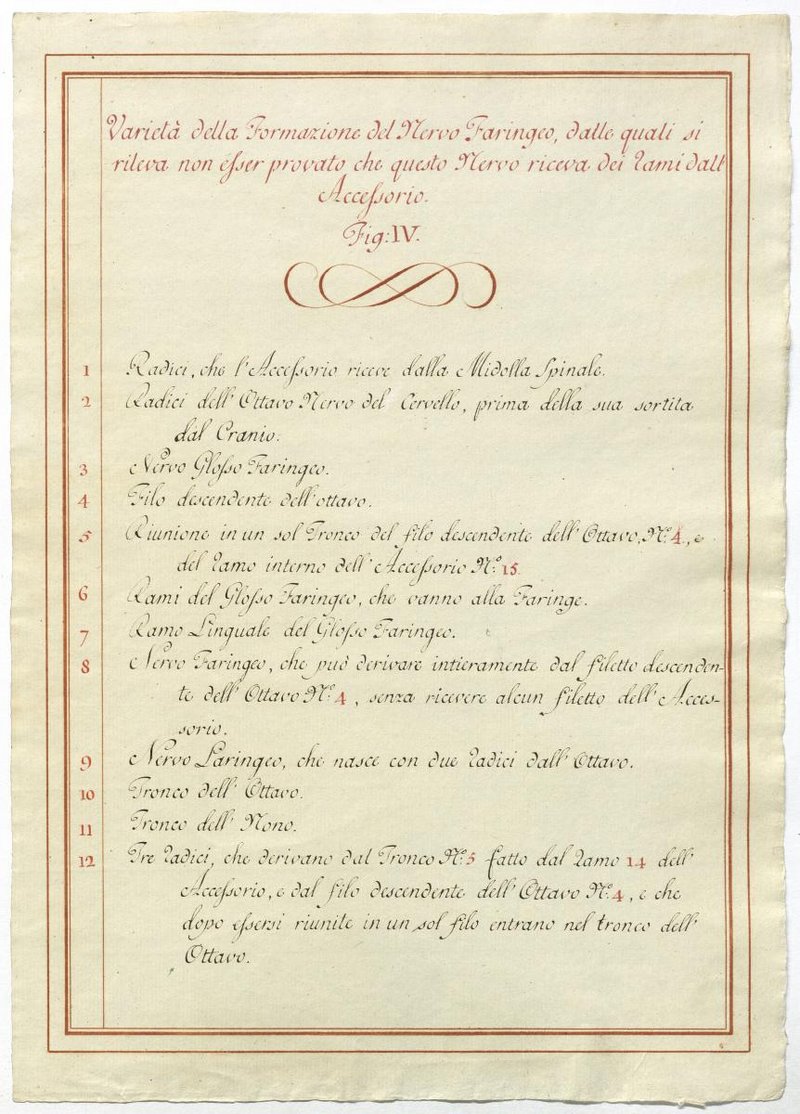 Varietà della Formazione del Nervo Faringeo, dalle quali si
rileva non esser provato che questo Nervo riceva dei rami dall'
Accessorio.
Fig: IV.
1 Radici, che l'Accessorio riceve dalla Midolla Spinale.
2 Radici dell'Ottavo Nervo del Cervello, prima della sua sortita
dal Cranio.
3 Nervo Glosso Faringeo.
4 Filo descendente dell'ottavo.
5 Riunione in un sol Tronco del filo descendente dell'Ottavo, N.º 4, e
del ramo interno dell'Accessorio N.º 15
6 Rami del Glosso Faringeo, che vanno alla Faringe.
7 Ramo Linguale del Glosso Faringeo.
8 Nervo Faringeo, che può derivare intieramente dal filetto descenden-
te dell'Ottavo N.º 4, senza ricevere alcun filetto dell'Acces-
sorio.
9 Nervo Laringeo, che nasce con due radici dall'Ottavo.
10 Tronco dell'Ottavo.
11 Tronco dell'Nono.
12 Tre radici, che derivano dal Tronco N.º 5 fatto dal ramo 14 dell'
Accessorio, e dal filo descendente dell'Ottavo N.º 4, e che
dopo essersi riunite in un sol filo entrano nel tronco dell'
Ottavo.